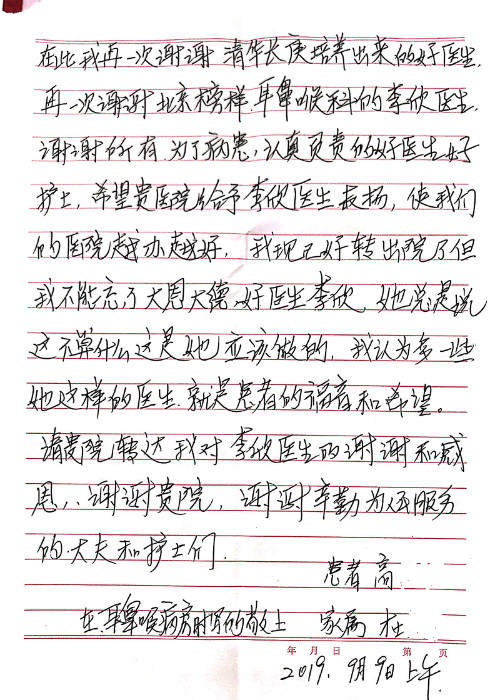 在此我再一次谢谢清华长庚培养出来的好医生.
再一次谢谢北京榜样耳鼻喉科的李欣医生.
谢谢所有为了病患,认真负责的好医生好
护士,希望贵医院给予李欣医生表扬,使我们
的医院越办越好,我现已好转出院了但
我不能忘了大恩大德好医生李欣,她总是说
这不算什么这是她应该做的,我认为多一些
她这样的医生.就是患者的福音和希望。
请贵院转达我对李欣医生的谢谢和感
恩,.谢谢贵院,谢谢辛勤为人民服务
的.大夫和护士们.
患者高
在耳鼻喉病房时写的敬上 家属杜
年 月 日 第 页
2019. 9月9日上午.